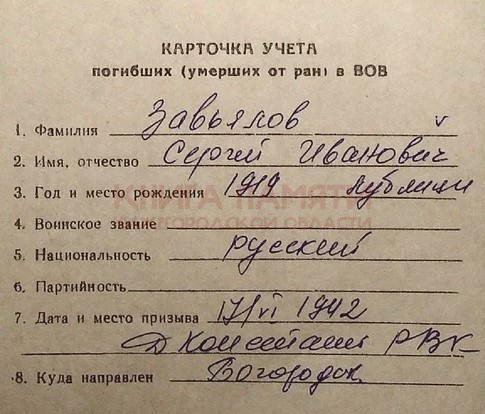 КАРТОЧКА УЧЕТА
погибших (умерших от ран) в ВОВ
1. Фамилия Завьялов
2. Имя, отчество Сергей Иванович
3. Год и место рождения 1919
КНИГА ПАМЯТИ
НИЖЕГОРОДСКОЙ ОБЛАСТИ
4. Воинское звание
5. Национальность русский
6. Партийность
7. Дата и место призыва 17/VI 1942
РВК
8. Куда направлен Богородск